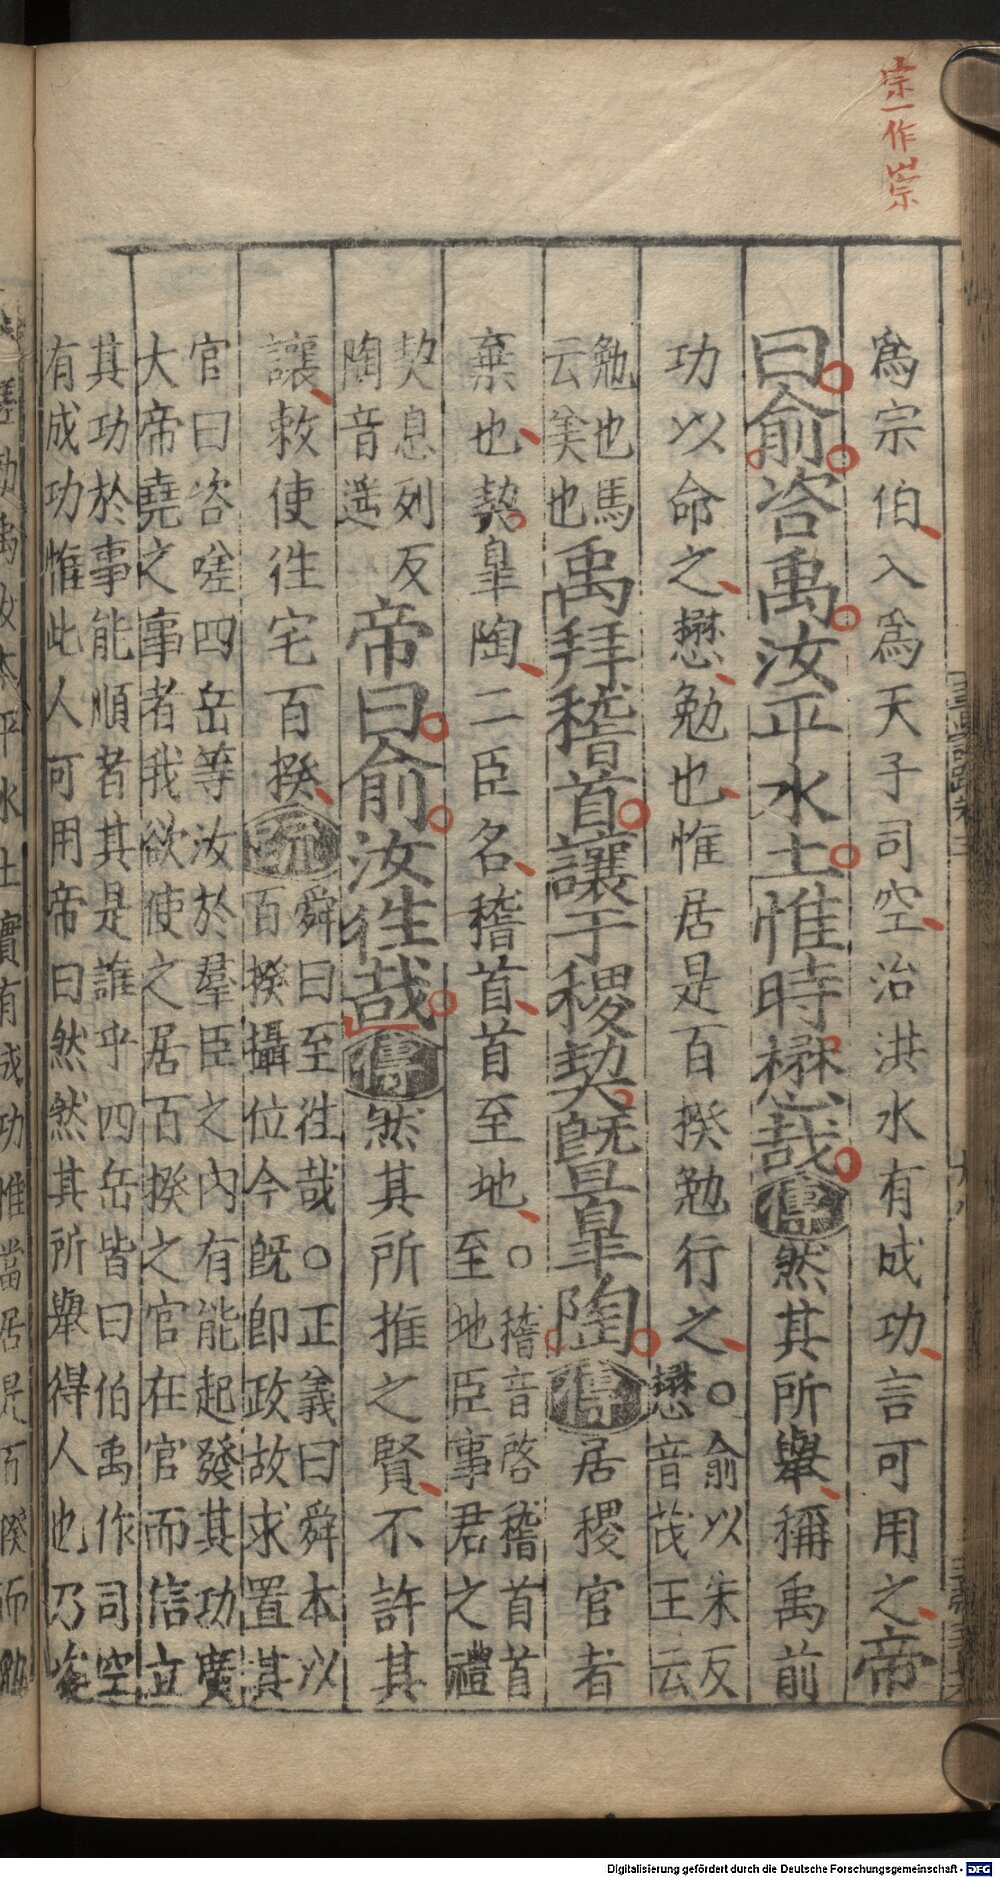 宗一作崇
爲宗伯入爲天子司空治洪水有成功言可用之帝
曰俞咨禹汝平水土惟時懋哉傳然其所舉稱禹前
功以命之懋勉也惟居是百揆勉行之○俞以朱反
懋音茂王云
勉也馬
云美也禹拜稽首讓于稷契曁皐陶傳居稷官者
棄也契皐陶二臣名稽首首至地○稽音啓稽首首
至地臣事君之禮
契息列反
陶音遥帝曰俞汝往哉傳然其所推之賢不許其
讓敕使往宅百揆疏舜曰至往哉○正義曰舜本以
百揆攝位今旣卽政故求置其
官曰咨嗟四岳等汝於羣臣之內有能起發其功廣
大帝堯之事者我欲使之居百揆之官在官而信立
其功於事能順者其是誰乎四岳皆曰伯禹作司空
有成功惟此人可用帝曰然然其所舉得人也乃
禹汝本平水土實有成功惟當居是百揆而勉
Digitalisierung gefördert durch die Deutsche Forschungsgemeinschaft - DFG